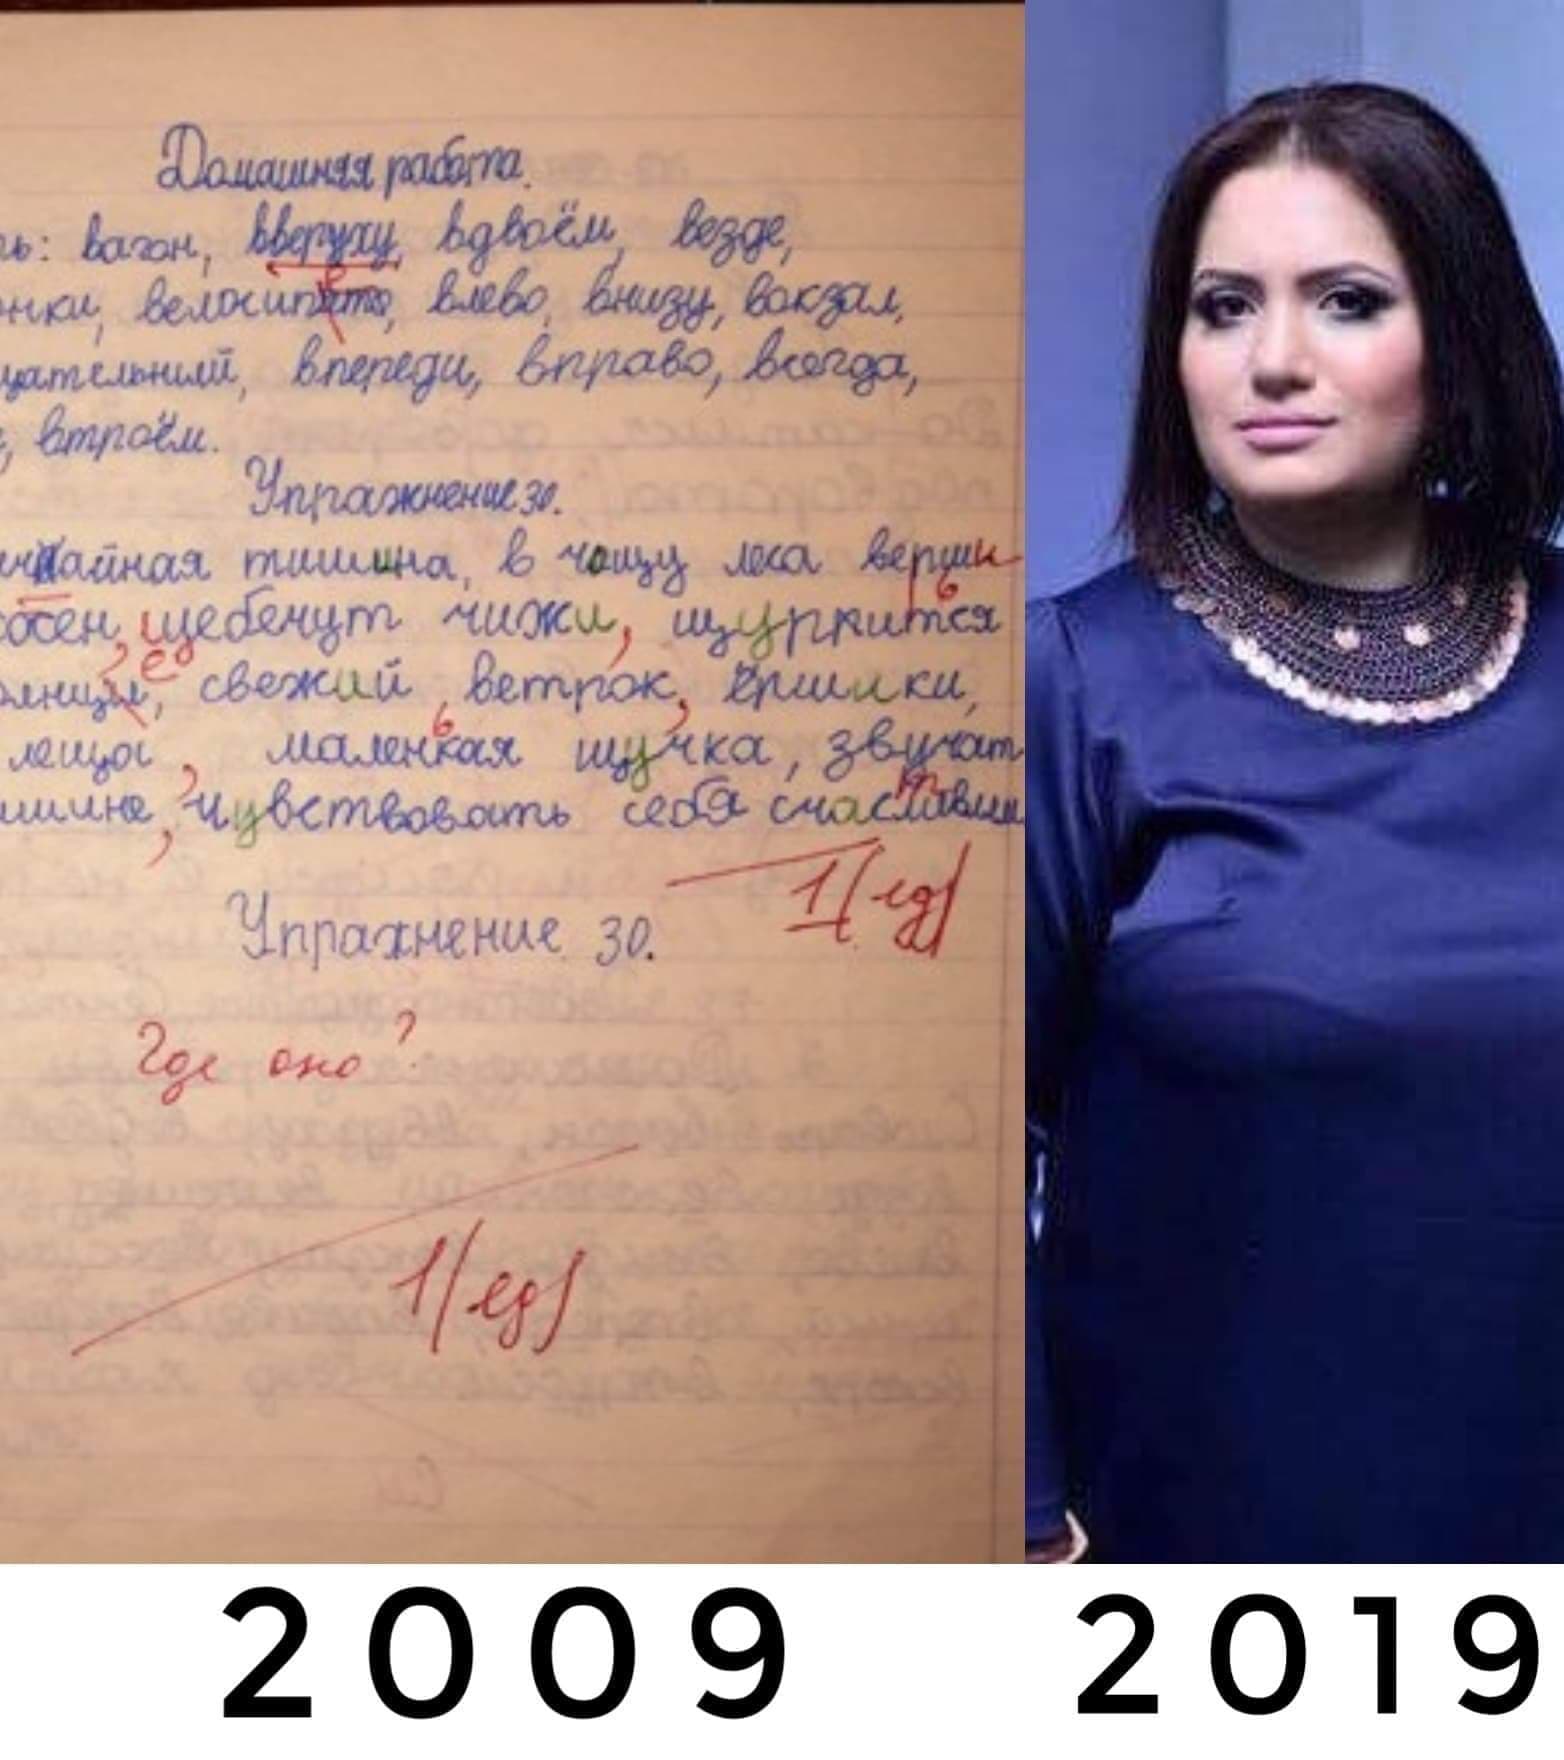 Домашняя работа.
ть: вагон, вверуху, вдвоём, везде,
нки, велосипато, влево, внизу, вокзал,
чательний, впереди, вправо, всегда,
, втроём.
Упражнение 30.
айная тишина, в чащу леса верши и
сосен, щебечут чижи, щуррится ь
лнци е, свежий ветрок, ёршики,
лещи, маленкая ь щучка, звучат
ишине, чувствовать себя счаславим т
1(ед)
Упрахнение 30.
Где оно?
1(ед)
2009 2019